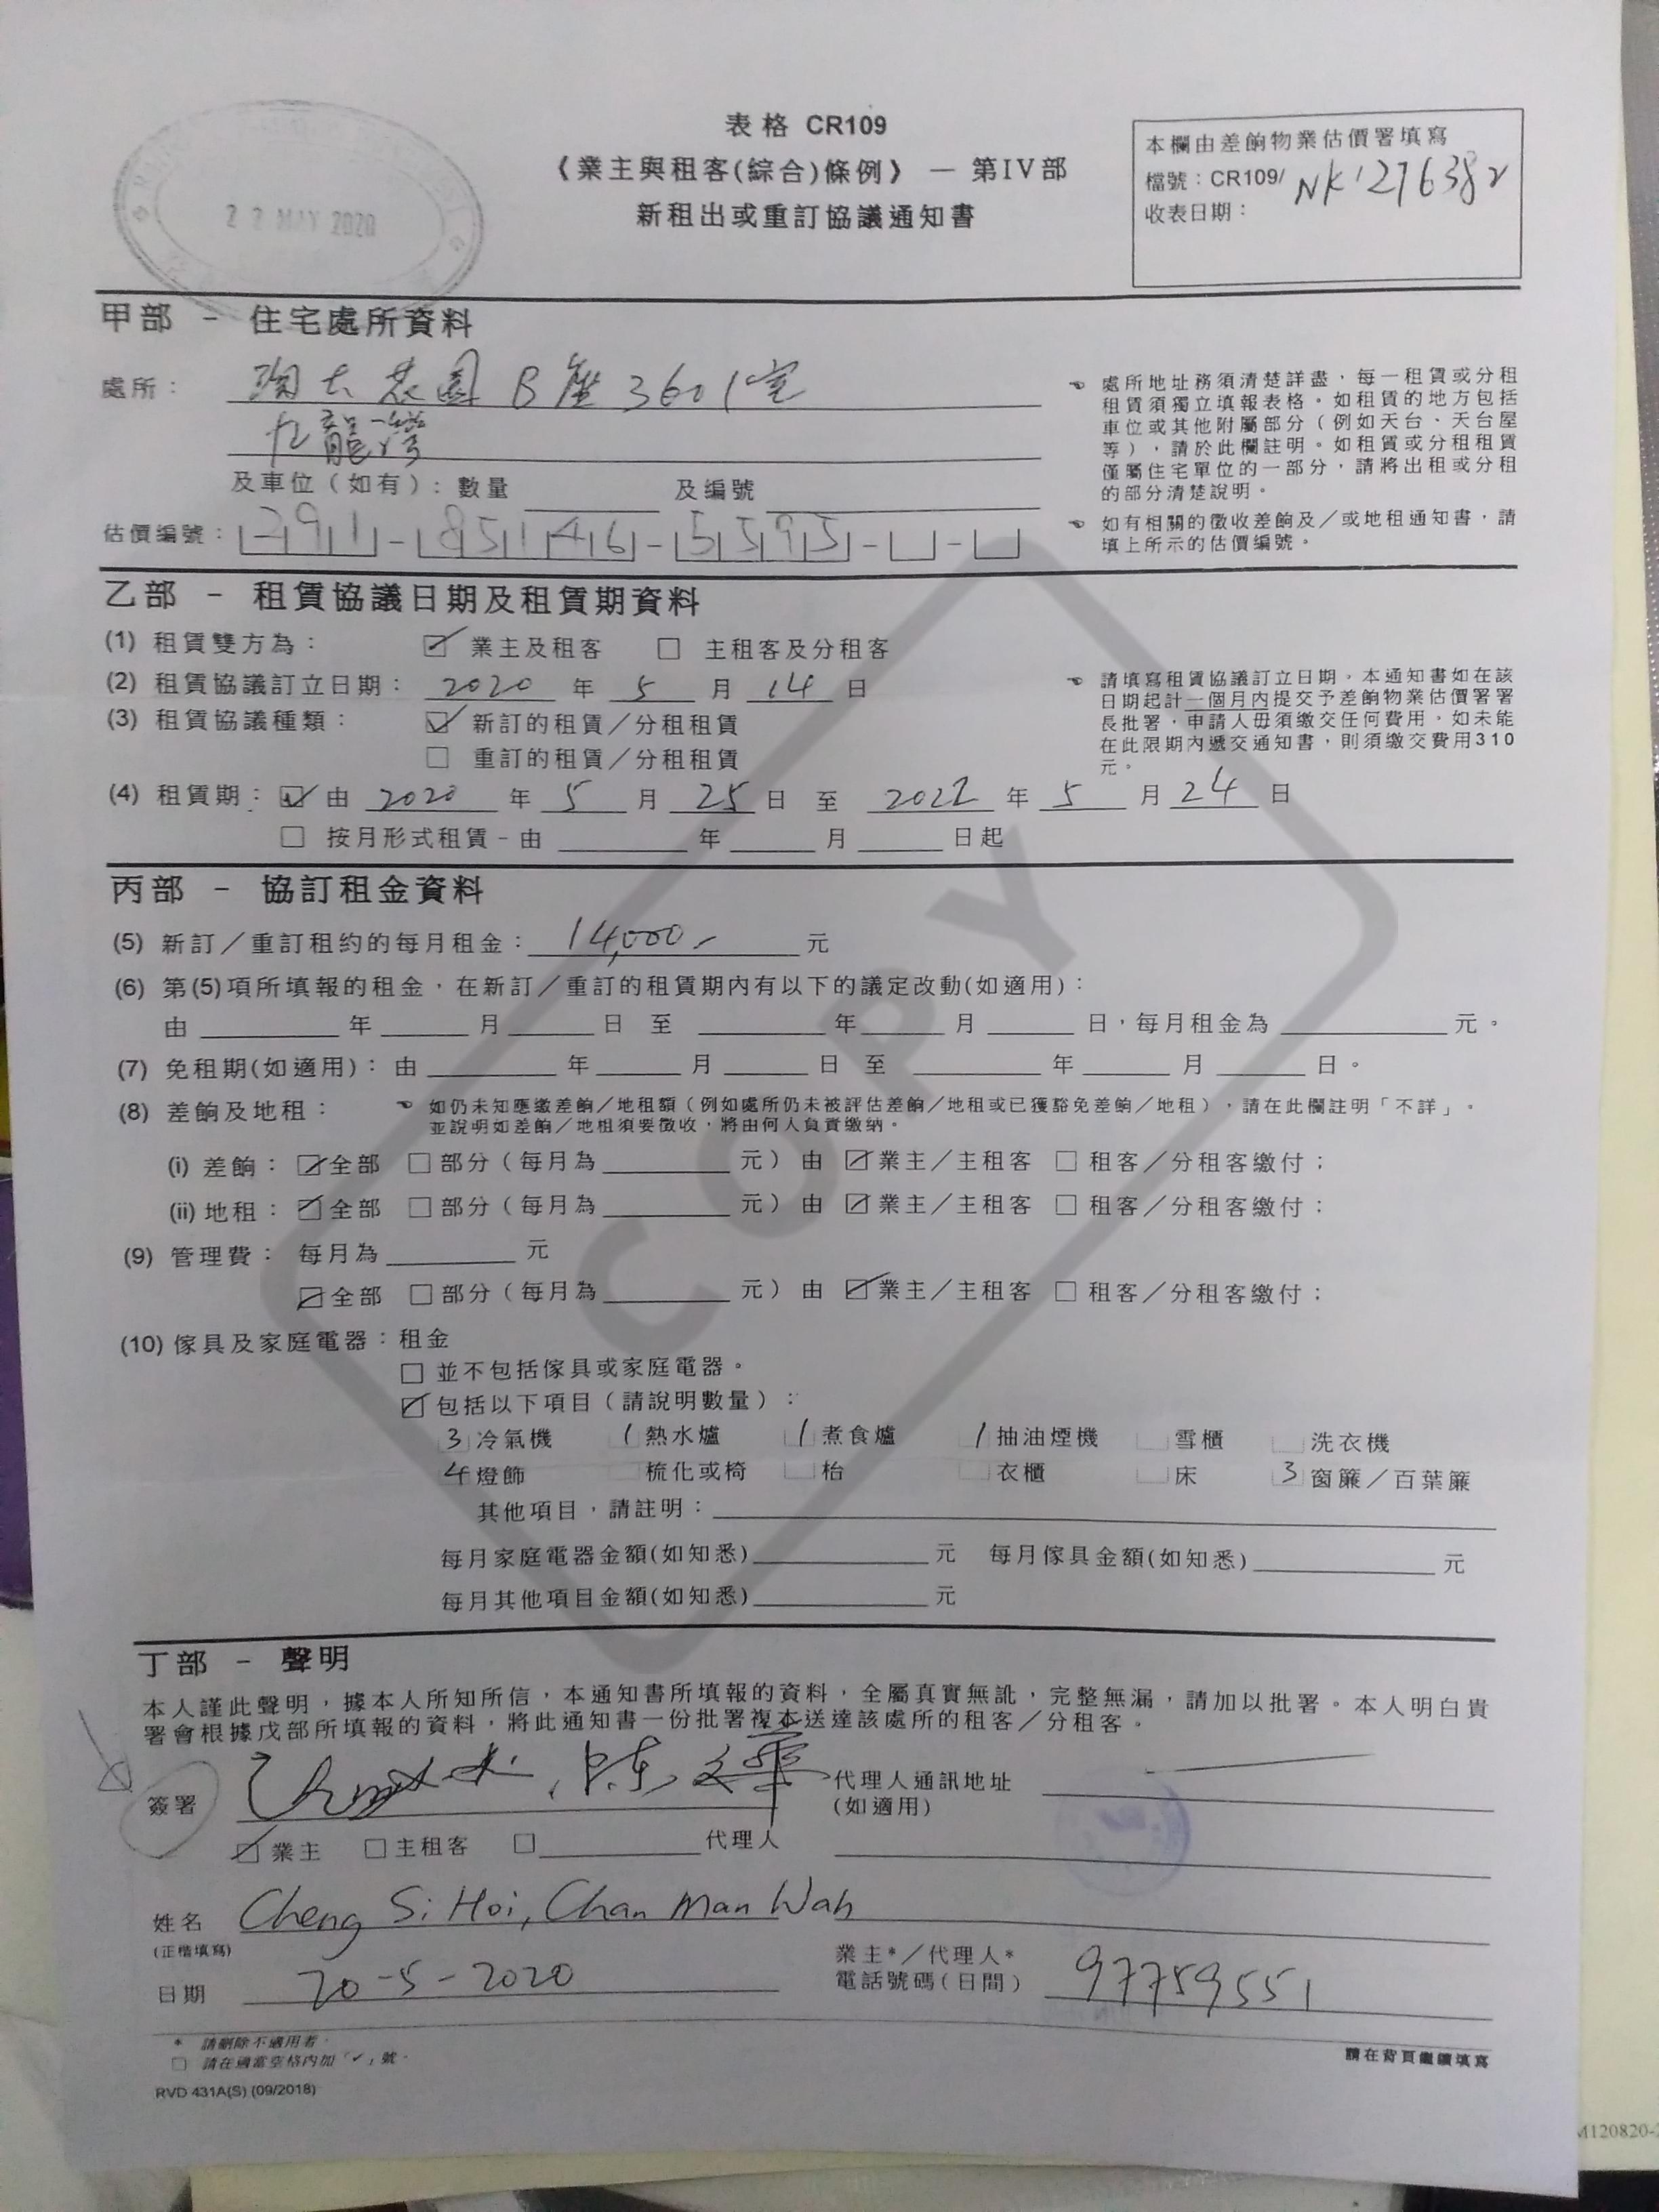 表格 CR109
《業主與租客(綜合)條例》 — 第IV部
新租出或重訂協議通知書
本欄由差餉物業估價署填寫
檔號：CR109/ NK1276382
收表日期：
22 MAY 2020
甲部 - 住宅處所資料
處所： 淘大花園 B座 3601室
九龍灣
及車位（如有）：數量 及編號
估價編號： 291 - 85146 - 5595 - -
☜ 處所地址務須清楚詳盡，每一租賃或分租
租賃須獨立填報表格。如租賃的地方包括
車位或其他附屬部分（例如天台、天台屋
等），請於此欄註明。如租賃或分租租賃
僅屬住宅單位的一部分，請將出租或分租
的部分清楚說明。
☜ 如有相關的徵收差餉及／或地租通知書，請
填上所示的估價編號。
乙部 - 租賃協議日期及租賃期資料
(1) 租賃雙方為： ☑ 業主及租客 □ 主租客及分租客
(2) 租賃協議訂立日期： 2020 年 5 月 14 日
(3) 租賃協議種類： ☑ 新訂的租賃／分租租賃
□ 重訂的租賃／分租租賃
☜ 請填寫租賃協議訂立日期。本通知書如在該
日期起計一個月內提交予差餉物業估價署署
長批署，申請人毋須繳交任何費用。如未能
在此限期內遞交通知書，則須繳交費用310
元。
(4) 租賃期： ☑ 由 2020 年 5 月 25 日 至 2022 年 5 月 24 日
□ 按月形式租賃 - 由 年 月 日起
丙部 - 協訂租金資料
(5) 新訂／重訂租約的每月租金： 14,000 元
(6) 第(5)項所填報的租金，在新訂／重訂的租賃期內有以下的議定改動(如適用)：
由 年 月 日 至 年 月 日，每月租金為 元。
(7) 免租期(如適用)：由 年 月 日 至 年 月 日。
(8) 差餉及地租： ☜ 如仍未知應繳差餉／地租額（例如處所仍未被評估差餉／地租或已獲豁免差餉／地租），請在此欄註明「不詳」。
並說明如差餉／地租須要徵收，將由何人負責繳納。
(i) 差餉： ☑全部 □部分（每月為 元） 由 ☑業主／主租客 □ 租客／分租客繳付；
(ii) 地租： ☑全部 □部分（每月為 元） 由 ☑業主／主租客 □ 租客／分租客繳付；
(9) 管理費： 每月為 元
☑全部 □部分（每月為 元） 由 ☑業主／主租客 □ 租客／分租客繳付；
(10) 傢具及家庭電器：租金
□ 並不包括傢具或家庭電器。
☑ 包括以下項目（請說明數量）：
3 冷氣機 1 熱水爐 1 煮食爐 1 抽油煙機 雪櫃 洗衣機
4 燈飾 梳化或椅 枱 衣櫃 床 3 窗簾／百葉簾
其他項目，請註明：
每月家庭電器金額(如知悉) 元 每月傢具金額(如知悉) 元
每月其他項目金額(如知悉) 元
COPY
丁部 - 聲明
本人謹此聲明，據本人所知所信，本通知書所填報的資料，全屬真實無訛，完整無漏，請加以批署。本人明白貴
署會根據戊部所填報的資料，將此通知書一份批署複本送達該處所的租客／分租客。
簽署 陳文華 代理人通訊地址
(如適用)
☑ 業主 □ 主租客 □ 代理人
姓名 Cheng Si Hoi, Chan Man Wah
(正楷填寫)
日期 20-5-2020
業主*／代理人*
電話號碼(日間) 97759551
* 請刪除不適用者。
□ 請在適當空格內加「✓」號。
請在背頁繼續填寫
RVD 431A(S) (09/2018)
M120820-